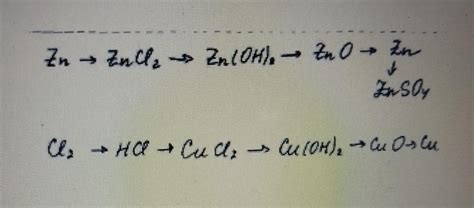 Zn → ZnCl₂ → Zn(OH)₂ → ZnO → Zn
↓
ZnSO₄
Cl₂ → HCl → CuCl₂ → Cu(OH)₂ → CuO → Cu